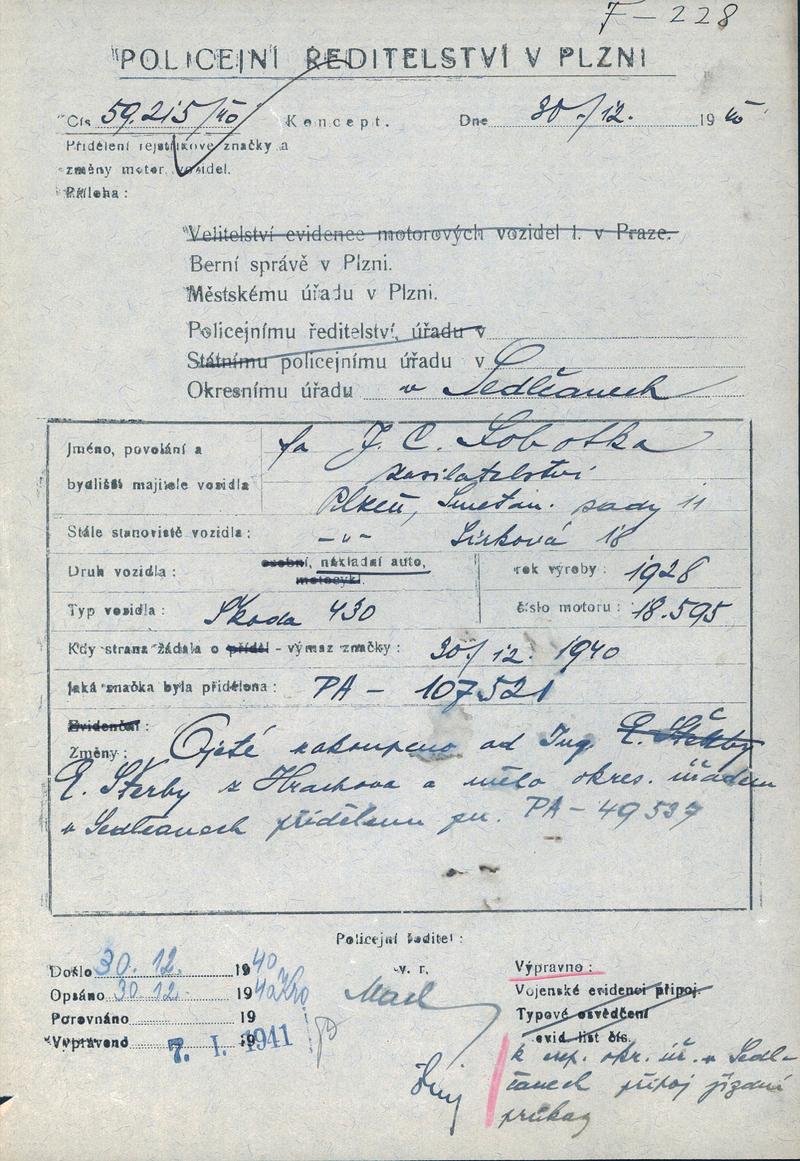 F-228
POLICEJNÍ ŘEDITELSTVÍ V PLZNI
Čís 59.215/40 Koncept. Dne 30./12. 1940
Přidělení rejstříkové značky a
změny motor. vozidel.
Příloha :
Velitelství evidence motorových vozidel I. v Praze.
Berní správě v Plzni.
Městskému úřadu v Plzni.
Policejnímu ředitelství, úřadu v
Státnímu policejnímu úřadu v
Okresnímu úřadu v Sedlčanech
Jméno, povolání a
bydliště majitele vozidla
fa J. C. Sobotka
zasilatelství
Plzeň, Smetan. sady 11
Stálé stanoviště vozidla : -„- Sirková 18
Druh vozidla : osobní, nákladní auto, motocykl. rok výroby : 1928
Typ vozidla : Škoda 430 číslo motoru : 18.595
Kdy strana žádala o příděl - výmaz značky : 30./12. 1940
Jaká značka byla přidělena : PA - 107521
Evidenční :
Změny : Ojeté zakoupeno od Ing. E. Štěrby
E. Štěrby z Hrachova a mělo okres. úřadem
v Sedlčanech přidělenu zn. PA - 49537
Policejní ředitel :
Došlo 30. 12. 1940
v. r.
Výpravno :
Opsáno 30 12. 1940
Vojenské evidenci připoj.
Porovnáno 19
Typové osvědčení
Vypraveno 19
7. I. 1941
evid. list čís.
k okr. úř. v Sedl-
čanech připoj jízdní
průkaz